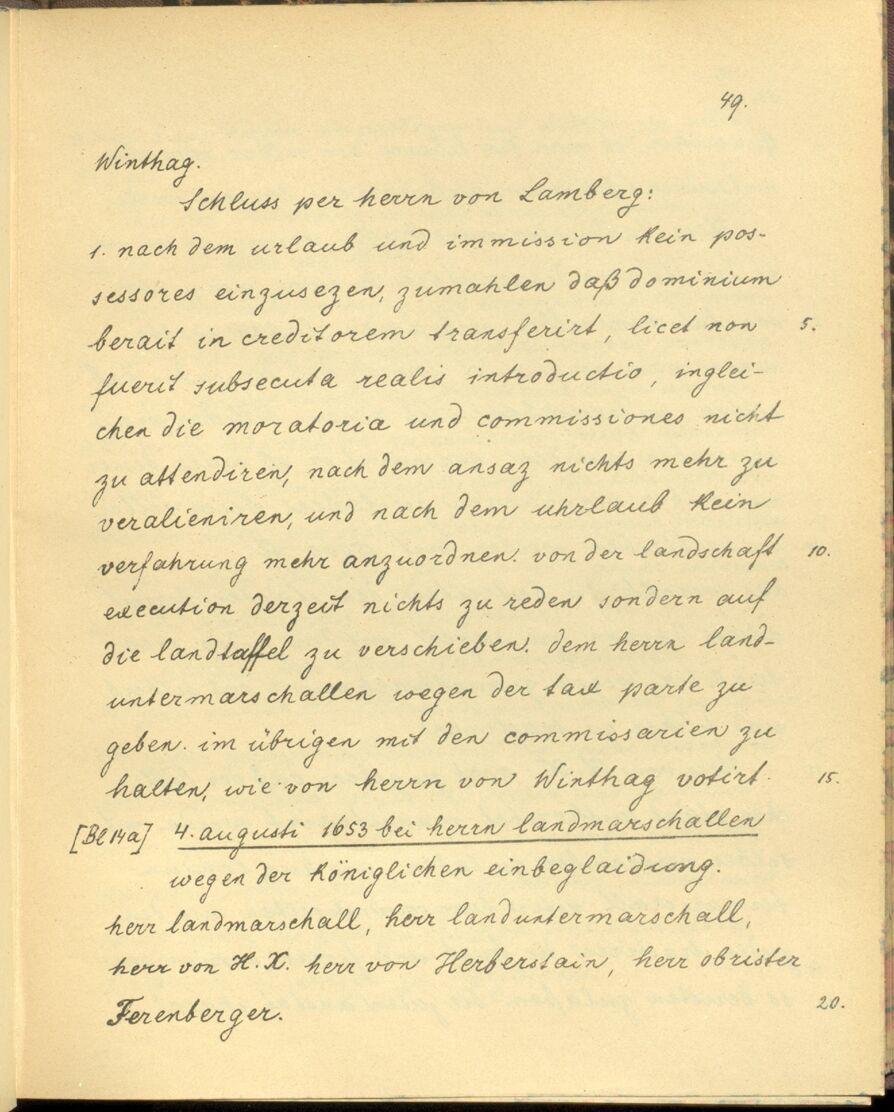 49.
Winthag.
Schluss per herrn von Lamberg:
1. nach dem urlaub und immission kein pos-
sessores einzusezen, zumahlen daß dominium
berait in creditorem transferirt, licet non 5.
fuerit subsecuta realis introductio, inglei-
chen die moratoria und commissiones nicht
zu attendiren, nach dem ansaz nichts mehr zu
veralieniren, und nach dem uhrlaub kein
verfahrung mehr anzuordnen. von der landschaft 10.
execution derzeit nichts zu reden sondern auf
die landtaffel zu verschieben. dem herrn land-
untermarschallen wegen der tax parte zu
geben. im übrigen mit den commissarien zu
halten, wie von herrn von Winthag votirt. 15.
[Bl 14a] 4. augusti 1653 bei herrn landmarschallen
wegen der königlichen einbeglaidung.
herr landmarschall, herr landuntermarschall,
herr von H. X. herr von Herberstain, herr obrister
Ferenberger. 20.